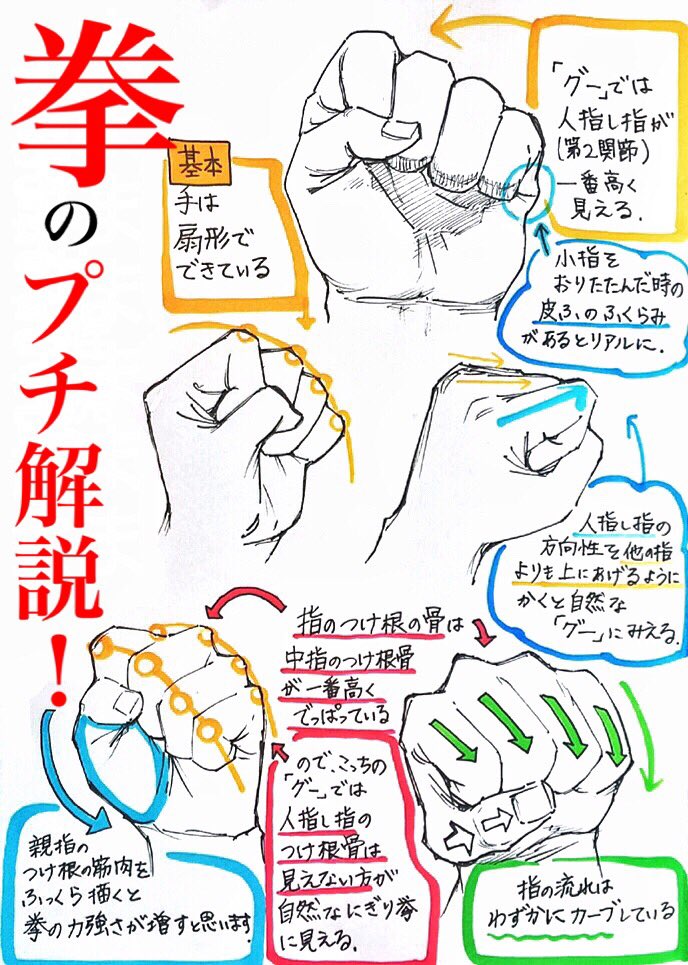 拳のプチ解説！
基本
手は
扇形で
できている
「グー」では
人指し指が
(第2関節)
一番高く
見える.
小指を
おりたたんだ時の
皮ふのふくらみ
があるとリアルに.
人指し指の
方向性を他の指
よりも上にあげるように
かくと自然な
「グー」にみえる.
指のつけ根の骨は
中指のつけ根骨
が一番高く
でっぱっている
ので、こっちの
「グー」では
人指し指の
つけ根骨は
見えない方が
自然なにぎり拳
に見える.
親指の
つけ根の筋肉を
ふっくら描くと
拳の力強さが増すと思います.
指の流れは
わずかにカーブしている